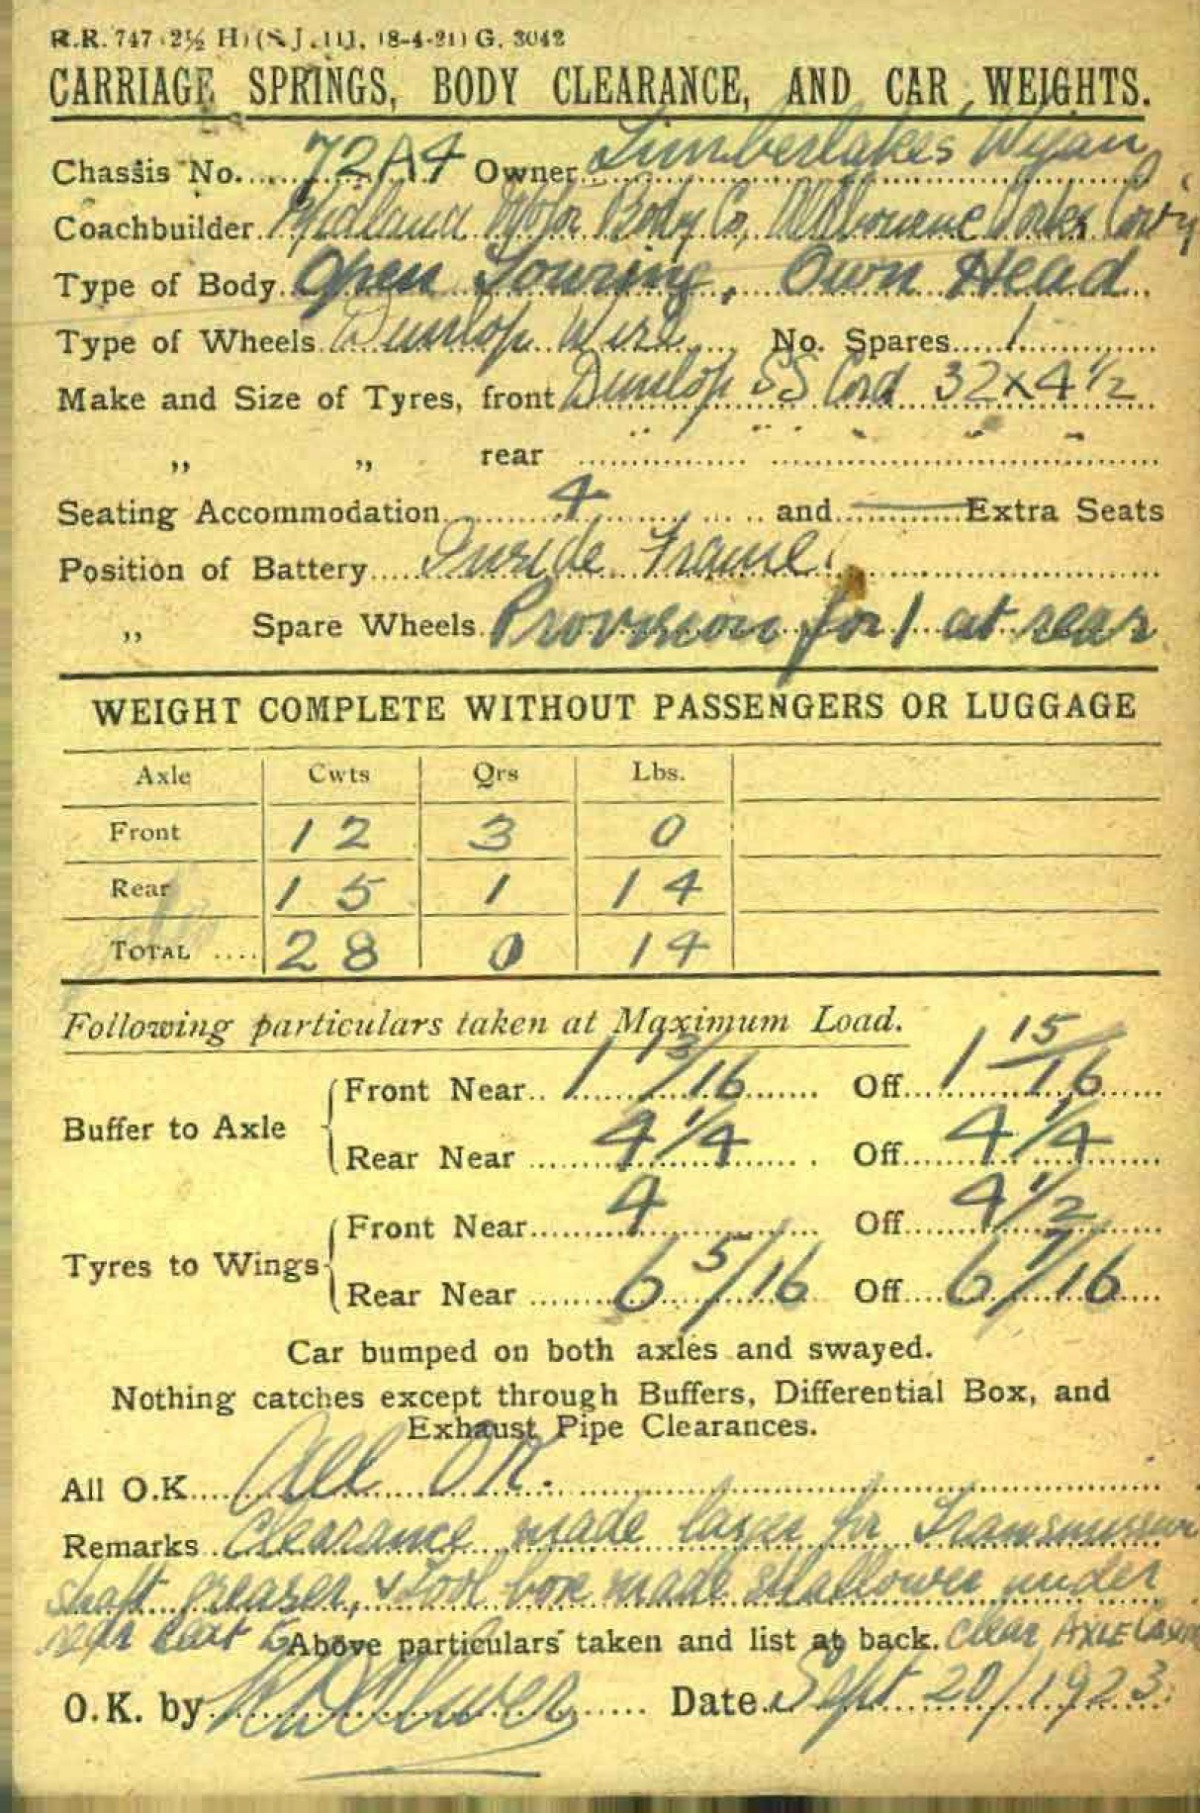 R.R. 747 (2½ H) (S.J. 111. 18-4-21) G. 3042
CARRIAGE SPRINGS, BODY CLEARANCE, AND CAR WEIGHTS.
Chassis No. 72A4 Owner Timberlakes Wigan
Coachbuilder Midland Motor Body Co, Coventry
Type of Body Open Touring, Own Head
Type of Wheels Dunlop Wire No. Spares 1
Make and Size of Tyres, front Dunlop SS Cord 32x4½
,, ,, rear ,, ,, ,, ,,
Seating Accommodation 4 and — Extra Seats
Position of Battery Inside Frame.
,, Spare Wheels Provision for 1 at rear
WEIGHT COMPLETE WITHOUT PASSENGERS OR LUGGAGE
Axle Cwts Qrs Lbs.
Front 12 3 0
Rear 15 1 14
TOTAL .... 28 0 14
Following particulars taken at Maximum Load.
Buffer to Axle { Front Near 1 13/16 Off 1 15/16
Rear Near 4 1/4 Off 4 1/4
Tyres to Wings { Front Near 4 Off 4 1/2
Rear Near 6 5/16 Off 6 7/16
Car bumped on both axles and swayed.
Nothing catches except through Buffers, Differential Box, and
Exhaust Pipe Clearances.
All O.K. All OK.
Remarks Clearance made larger for Transmission
shaft greaser, & tool box made shallower under
rear seat to clear AXLE Casing
Above particulars taken and list at back.
O.K. by Date Sept 20/1923.